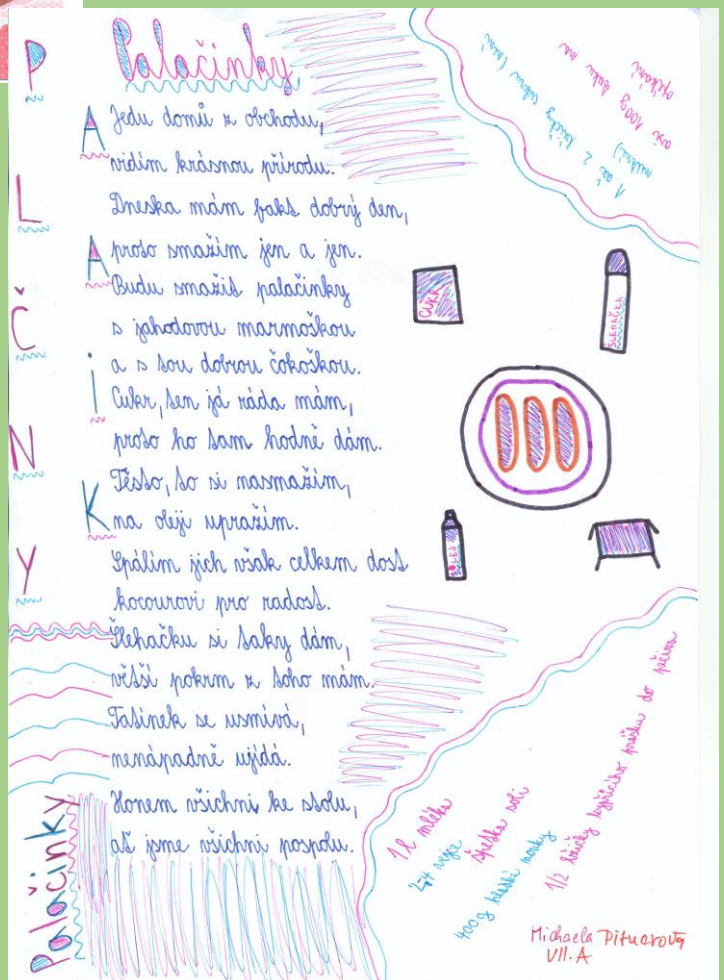 Palačinky
P
A
L
A
Č
i
N
K
Y
Jedu domů z obchodu,
vidím krásnou přírodu.
Dneska mám fakt dobrý den,
proto smažím jen a jen.
Budu smažit palačinky
s jahodovou marmoškou
a s tou dobrou čokoškou.
Cukr, ten já ráda mám,
proto ho tam hodně dám.
Těsto, to si nasmažím,
na oleji upražím.
Spálím jich však celkem dost
kocourovi pro radost.
Šlehačku si taky dám,
větší pokrm z toho mám.
Tatínek se usmívá,
nenápadně ujídá.
Honem všichni ke stolu,
ať jsme všichni pospolu.
Palačinky
1 až 2 lžičky cukru (není
asi 100g tuku na
opékání
CUKR
ŠLEHAČKA
OLEJ
1l mléka
vejce
špetka soli
400g hladké mouky
1/2 lžičky kypřícího prášku do pečiva
Michaela
VII. A